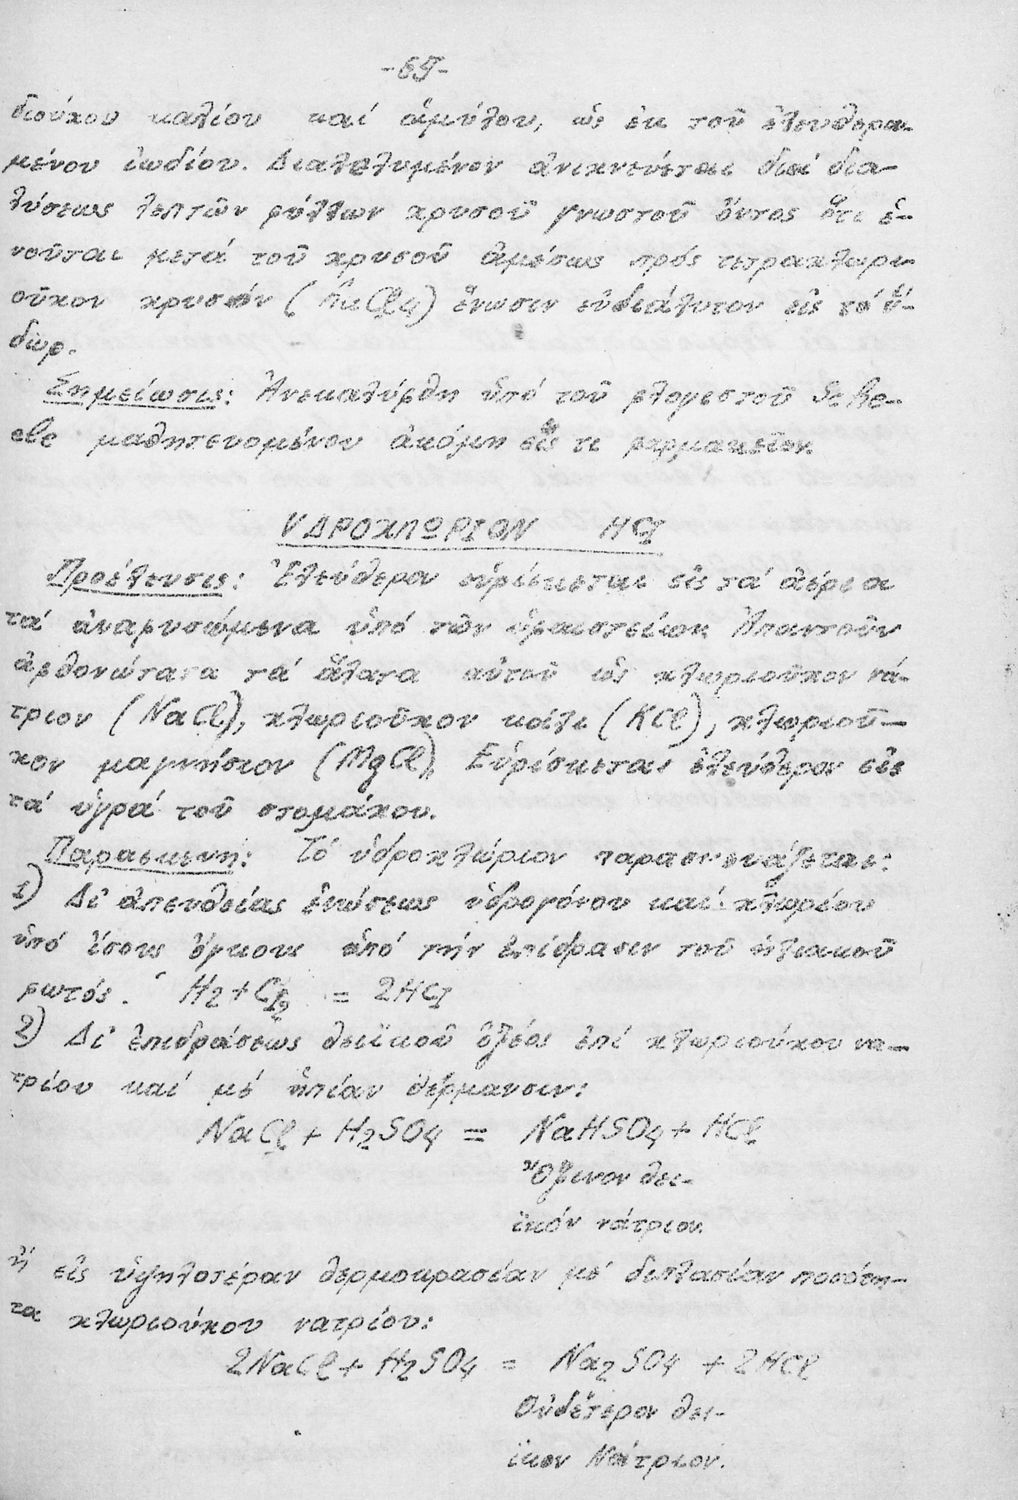 -65-
διούχου καλίου καί ἀμύλου, ὡς ἐκ τοῦ ἐλευθερω-
μένου ἰωδίου. Διαλελυμένον ἀνιχνεύεται διά δια-
λύσεως λεπτῶν φύλλων χρυσοῦ γνωστοῦ ὄντος ὅτι ἑ-
νοῦται μετά τοῦ χρυσοῦ ἀμέσως πρός τετραχλωρι-
οῦχον χρυσόν (AuCl4) ἕνωσιν εὐδιάλυτον εἰς τό ὕ-
δωρ.
Σημείωσις: Ἀνεκαλύφθη ὑπό τοῦ φλογιστοῦ Sche-
ele μαθητευομένου ἀκόμη εἰς τι φαρμακεῖον
ΥΔΡΟΧΛΩΡΙΟΝ HCl
Προέλευσις: Ἐλεύθερον εὑρίσκεται εἰς τά ἀέρια
τά ἀναφυσώμενα ὑπό τῶν ἡφαιστείων Ἀπαντοῦν
ἀφθονώτατα τά ἅλατα αὐτοῦ ὡς χλωριοῦχον νά-
τριον (NaCl), χλωριοῦχον κάλι (KCl), χλωριοῦ-
χον μαγνήσιον (MgCl). Εὑρίσκεται ἐλεύθερον εἰς
τά ὑγρά τοῦ στομάχου.
Παρασκευή: Τό ὑδροχλώριον παρασκευάζεται:
1) Δι' ἀπευθείας ἑνώσεως ὑδρογόνου καί χλωρίου
ὑπό ἴσους ὄγκους ὑπό τήν ἐπίδρασιν τοῦ ἡλιακοῦ
φωτός. H2+Cl2 = 2HCl
2) Δι' ἐπιδράσεως θειϊκοῦ ὀξέος ἐπί χλωριούχου να-
τρίου καί μέ ἠπίαν θέρμανσιν:
NaCl + H2SO4 = NaHSO4 + HCl
Ὄξινον θει-
ϊκόν νάτριον.
ἤ εἰς ὑψηλοτέραν θερμοκρασίαν μέ διπλασίαν ποσότη-
τα χλωριούχου νατρίου:
2NaCl + H2SO4 = Na2SO4 + 2HCl
Οὐδέτερον θει-
ϊκον Νάτριον.